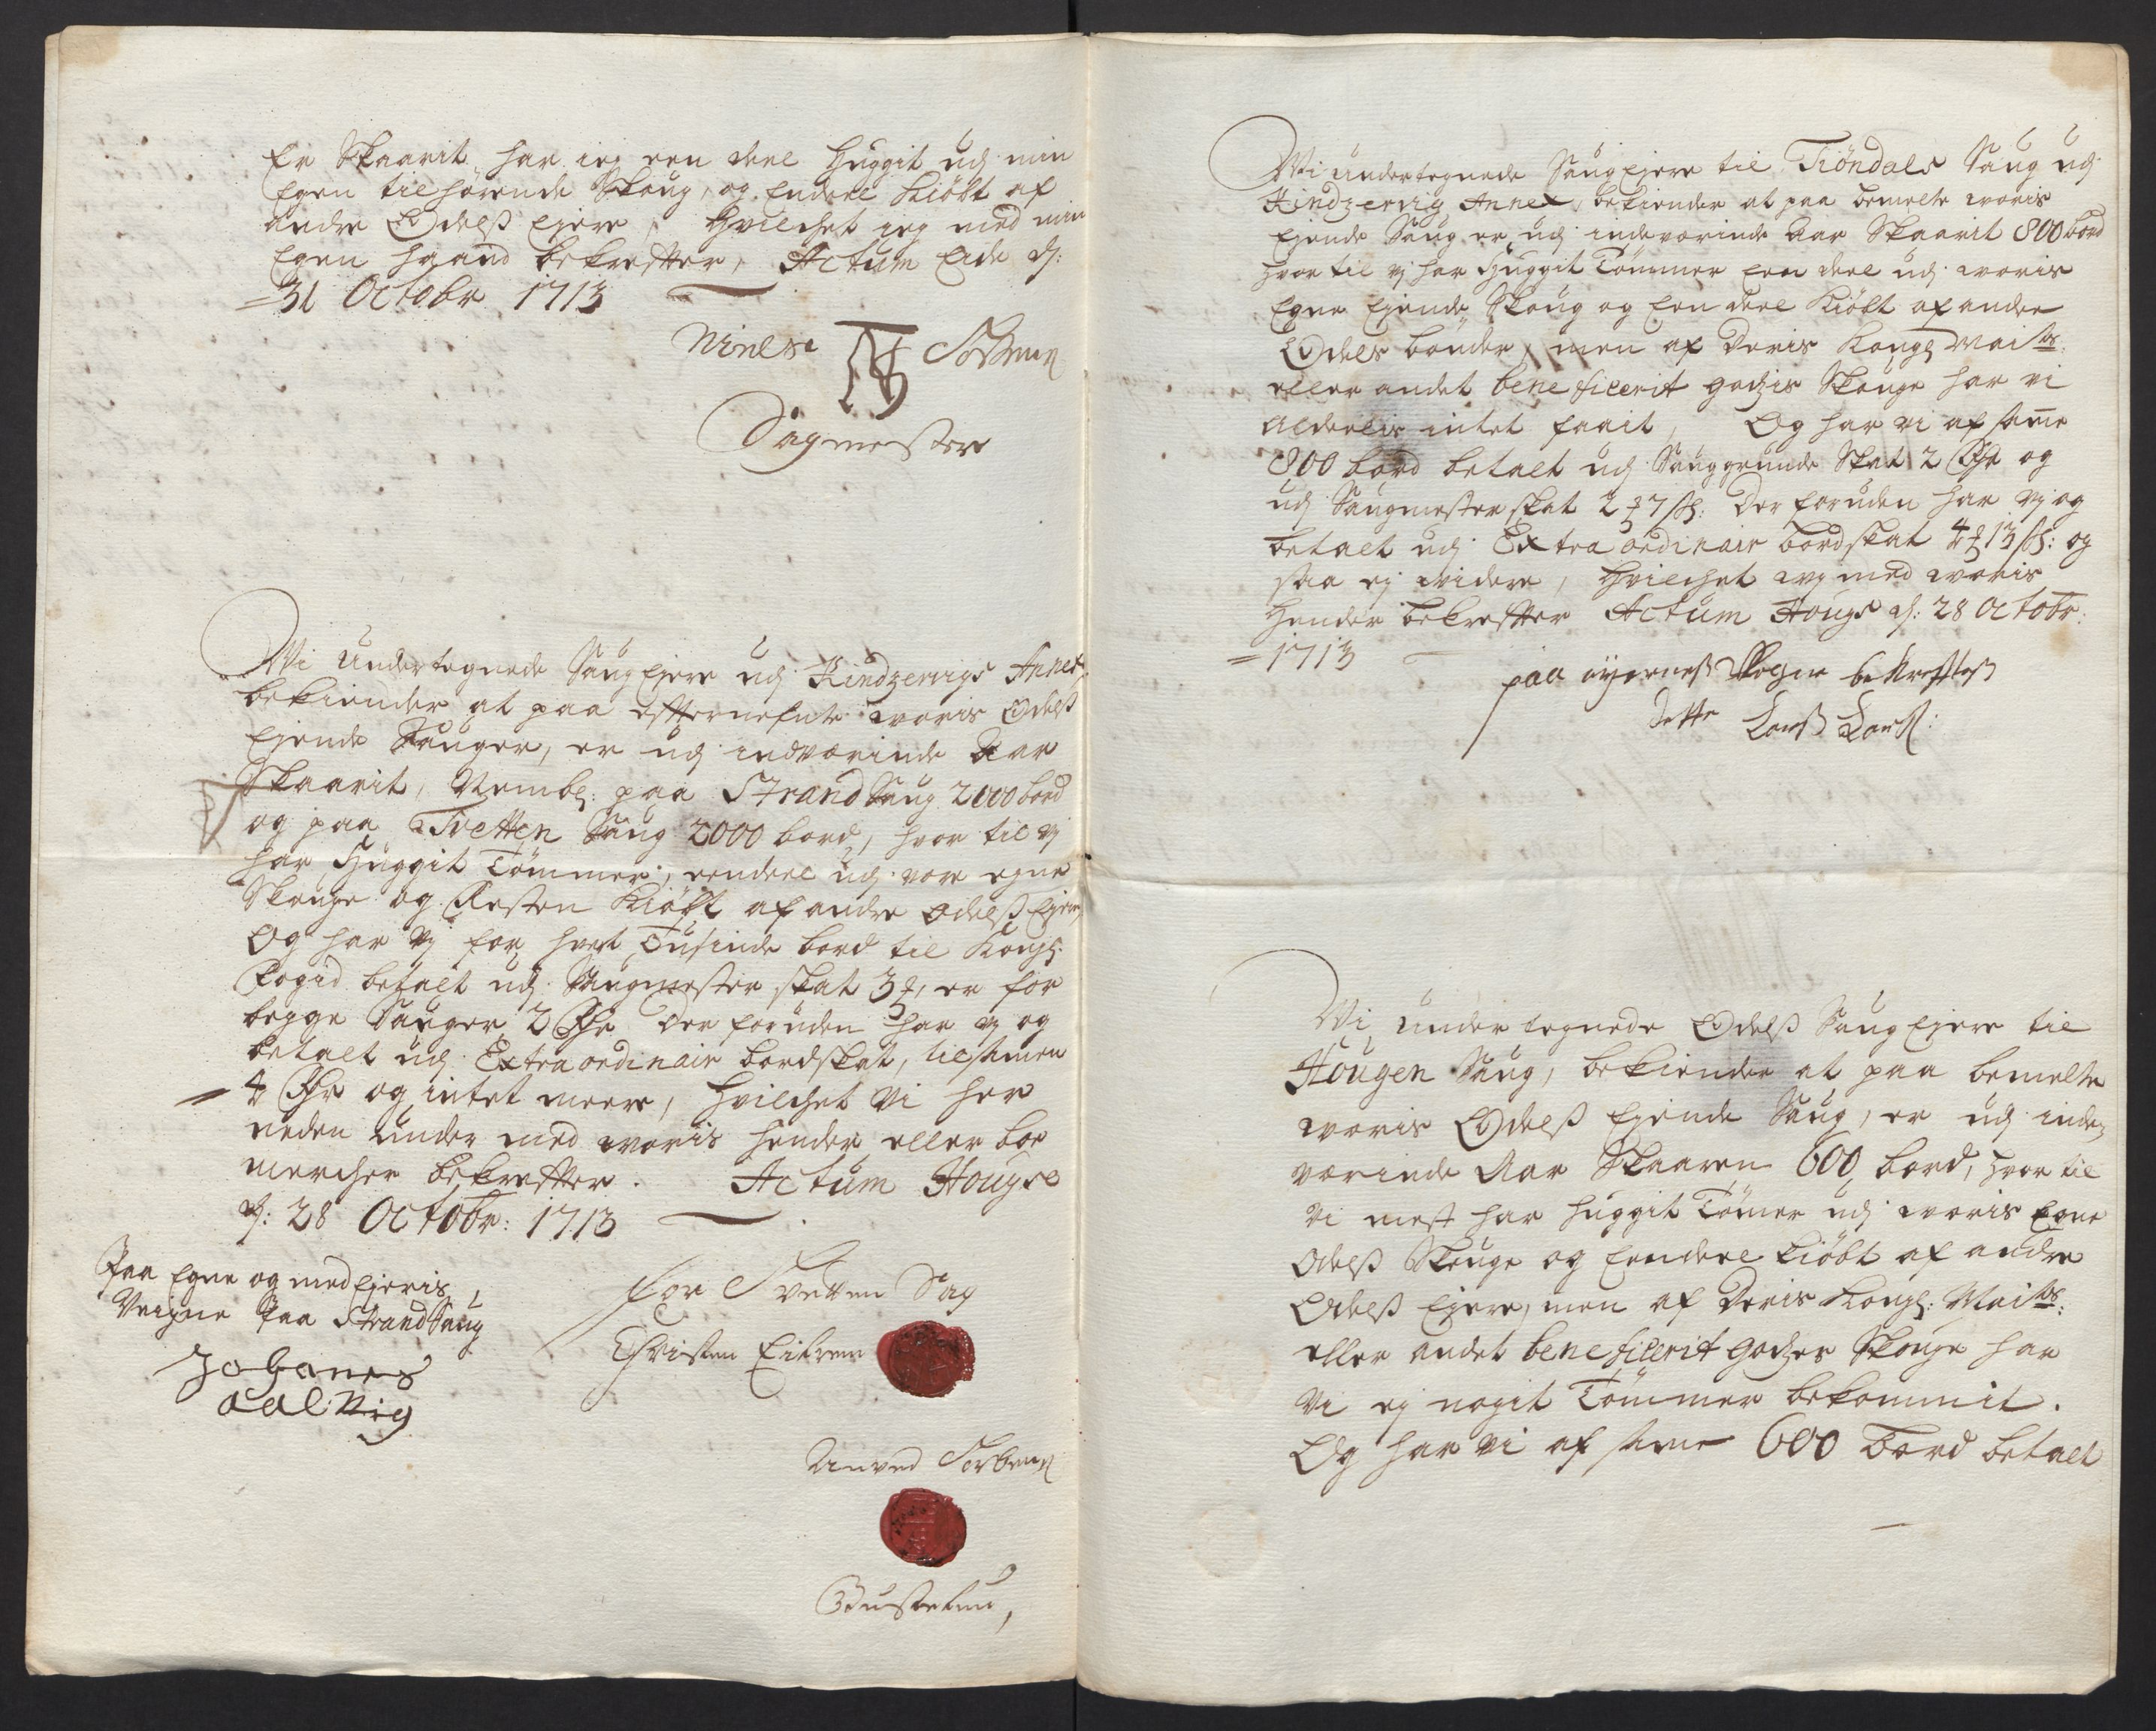 Er Skaarit har ieg een deel Huggit udj min
Egen tilhørende Skoug, og Endeel Kiøbt af
andre Odelß Ejere, Hvilchet ieg med min
Egen Haand bekreffter, Actum Eide dj:
31 Octobr 1713
Nielse
Sagmester
Wi undertegnede Saug Ejere udj Kindzervigs Annex,
bekiender at paa effternefnte woris Odelß
Ejende Sauger, er udj indværinde Aar
Skaarit, Nembl: paa Strand Saug 2000 bord
og paa Tvetten Saug 2000 bord, hvor til vj
har Huggit Tømmer, eendeel udj vore egne
Skouge og Resten Kiøbt af andre Odelß Ejere
Og har vj for hvert Tusinde bord til Kongl:
Fogid betalt udj Saugmester skat 3 , er for
begge Sauger 2 Rdr Der foruden har vj og
betalt udj Extra ordinair bordskat, tilsamen
4 Rdr og intet meere, Hvilchet Vi her
neden under med woris hender eller boe
mercher bekreffter. Actum Hougse
dj: 28 Octobr: 1713
Paa Egne og med Ejeris
Veigne Paa Strand Saug
Johanes
Aalvig
for Tvetten Sag
Christen Eitrem
Amved Torbens
Bustetun,
Wi undertegnede Saug Ejere til Tiøndals Saug udj
Kindzervig Annex, bekiender at paa bemelte woris
Ejende Saug er udj indeværinde Aar Skaarit 800 bord
hvor til vj har Huggit Tømmer Een deel udj woris
Egne Ejende Skoug og Een deel Kiøbt af andre
Odels bønder, men af Deris Kongl Maits:
eller andet beneficerit godzis Skouge har vi
Alderlis intet faait, Og har vi af samme
800 bord betalt udj Sauggrunde Skat 2 Rdr og
udj Saugmester skat 2 7 ß: Der foruden har vj og
betalt udj Extra ordinair bordskat 4 13 ß: og
saa ej widere, Hvilchet wj med woris
Hender bekreffter Actum Hougse dj: 28 Octobr:
1713
paa eyernes Vegne bekrefftes
dette Lars Lars:
Vi under tegnede Odelß Saug Ejere til
Hougen Saug, bekiender at paa bemelte
woris Odelß Ejende Saug, er udj inde
værinde Aar Skaaren 600 bord, hvor til
vi mest har huggit Tømer udj woris Egne
Odelß Skouge og Eendeel Kiøbt af andre
Odelß Ejere, men af Deris Kongl: Maits:
eller andet beneficerit godzes Skouge har
Vi ej nogit Tømmer bekommit.
Og har vi af samme 600 Bord betalt